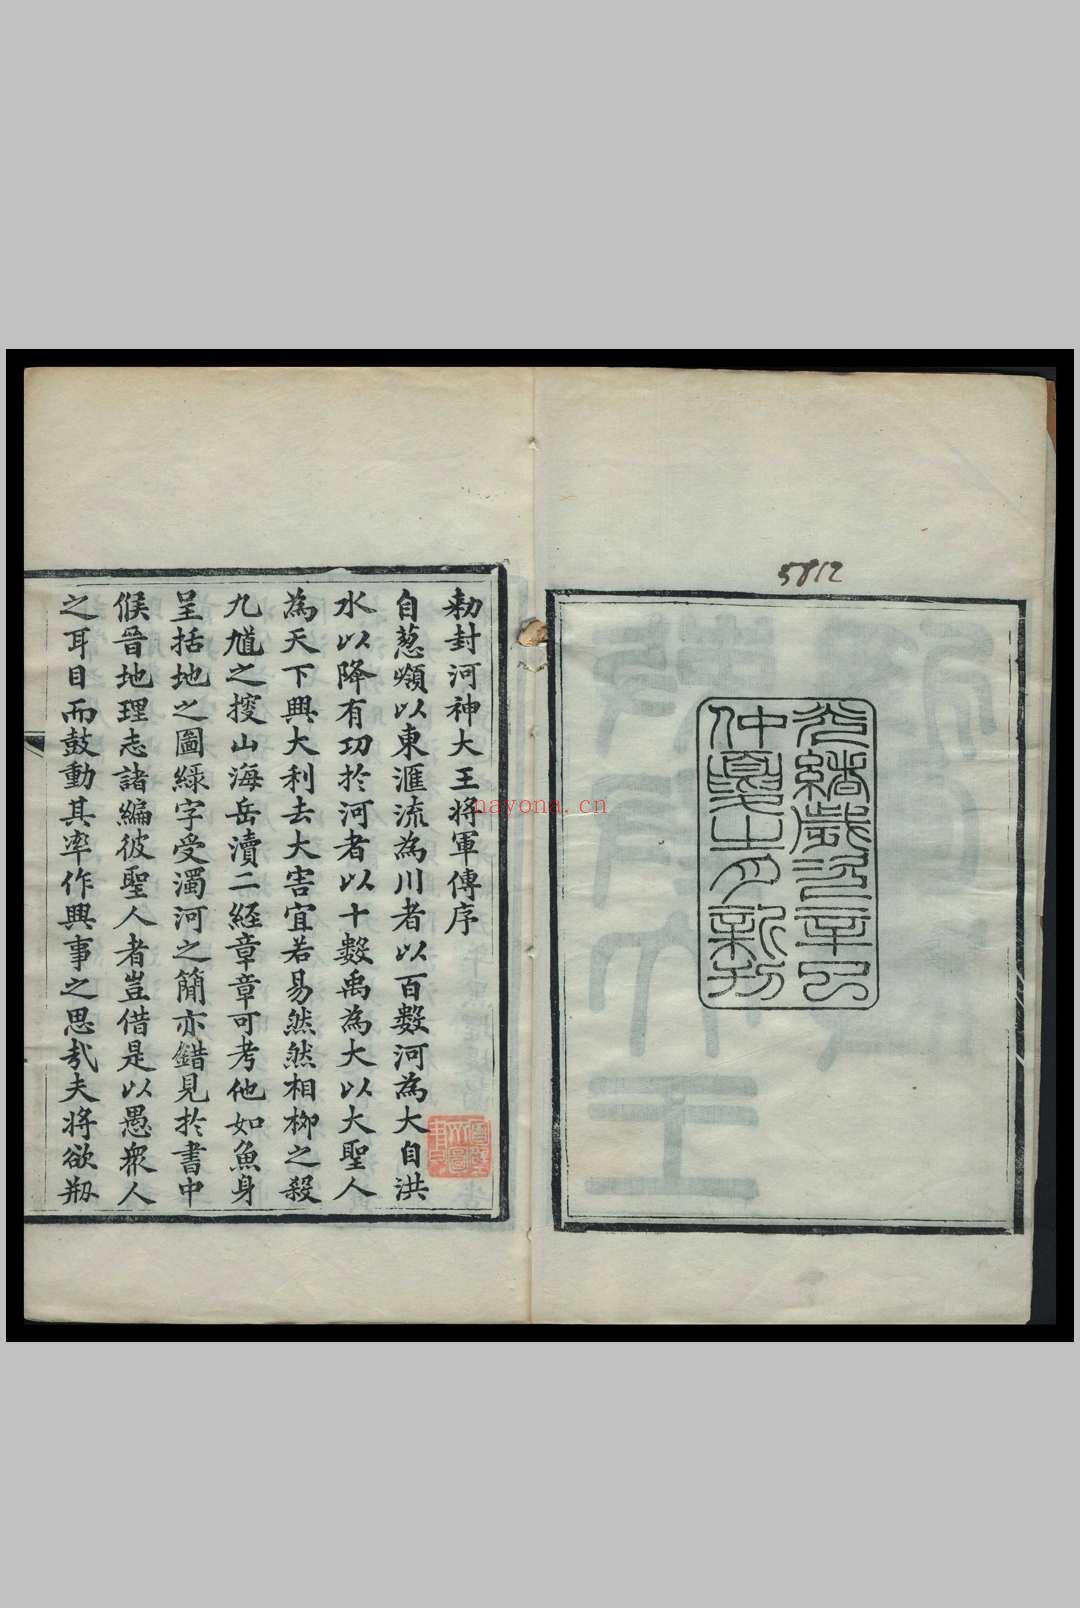 5812
光緒歲次辛巳
仲夏之月新刊
勅封河神大王將軍傳序
自葱嶺以東滙流為川者以百數河為大自洪
水以降有功於河者以十數禹為大以大聖人
為天下興大利去大害宜若易然然相柳之殺
九馗之搜山海岳瀆二經章章可考他如魚身
呈括地之圖綠字受濁河之簡亦錯見於書中
候晉地理志諸編彼聖人者豈借是以愚衆人
之耳目而鼓動其率作興事之思哉夫將欲刱
nayona.cn